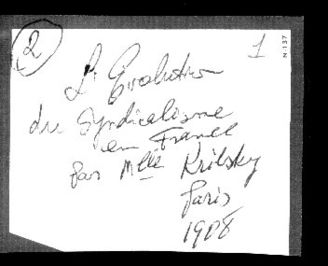 2
1
N-137
L'Evolution
du Syndicalisme
en France
par Mlle Kritsky
Paris
1908